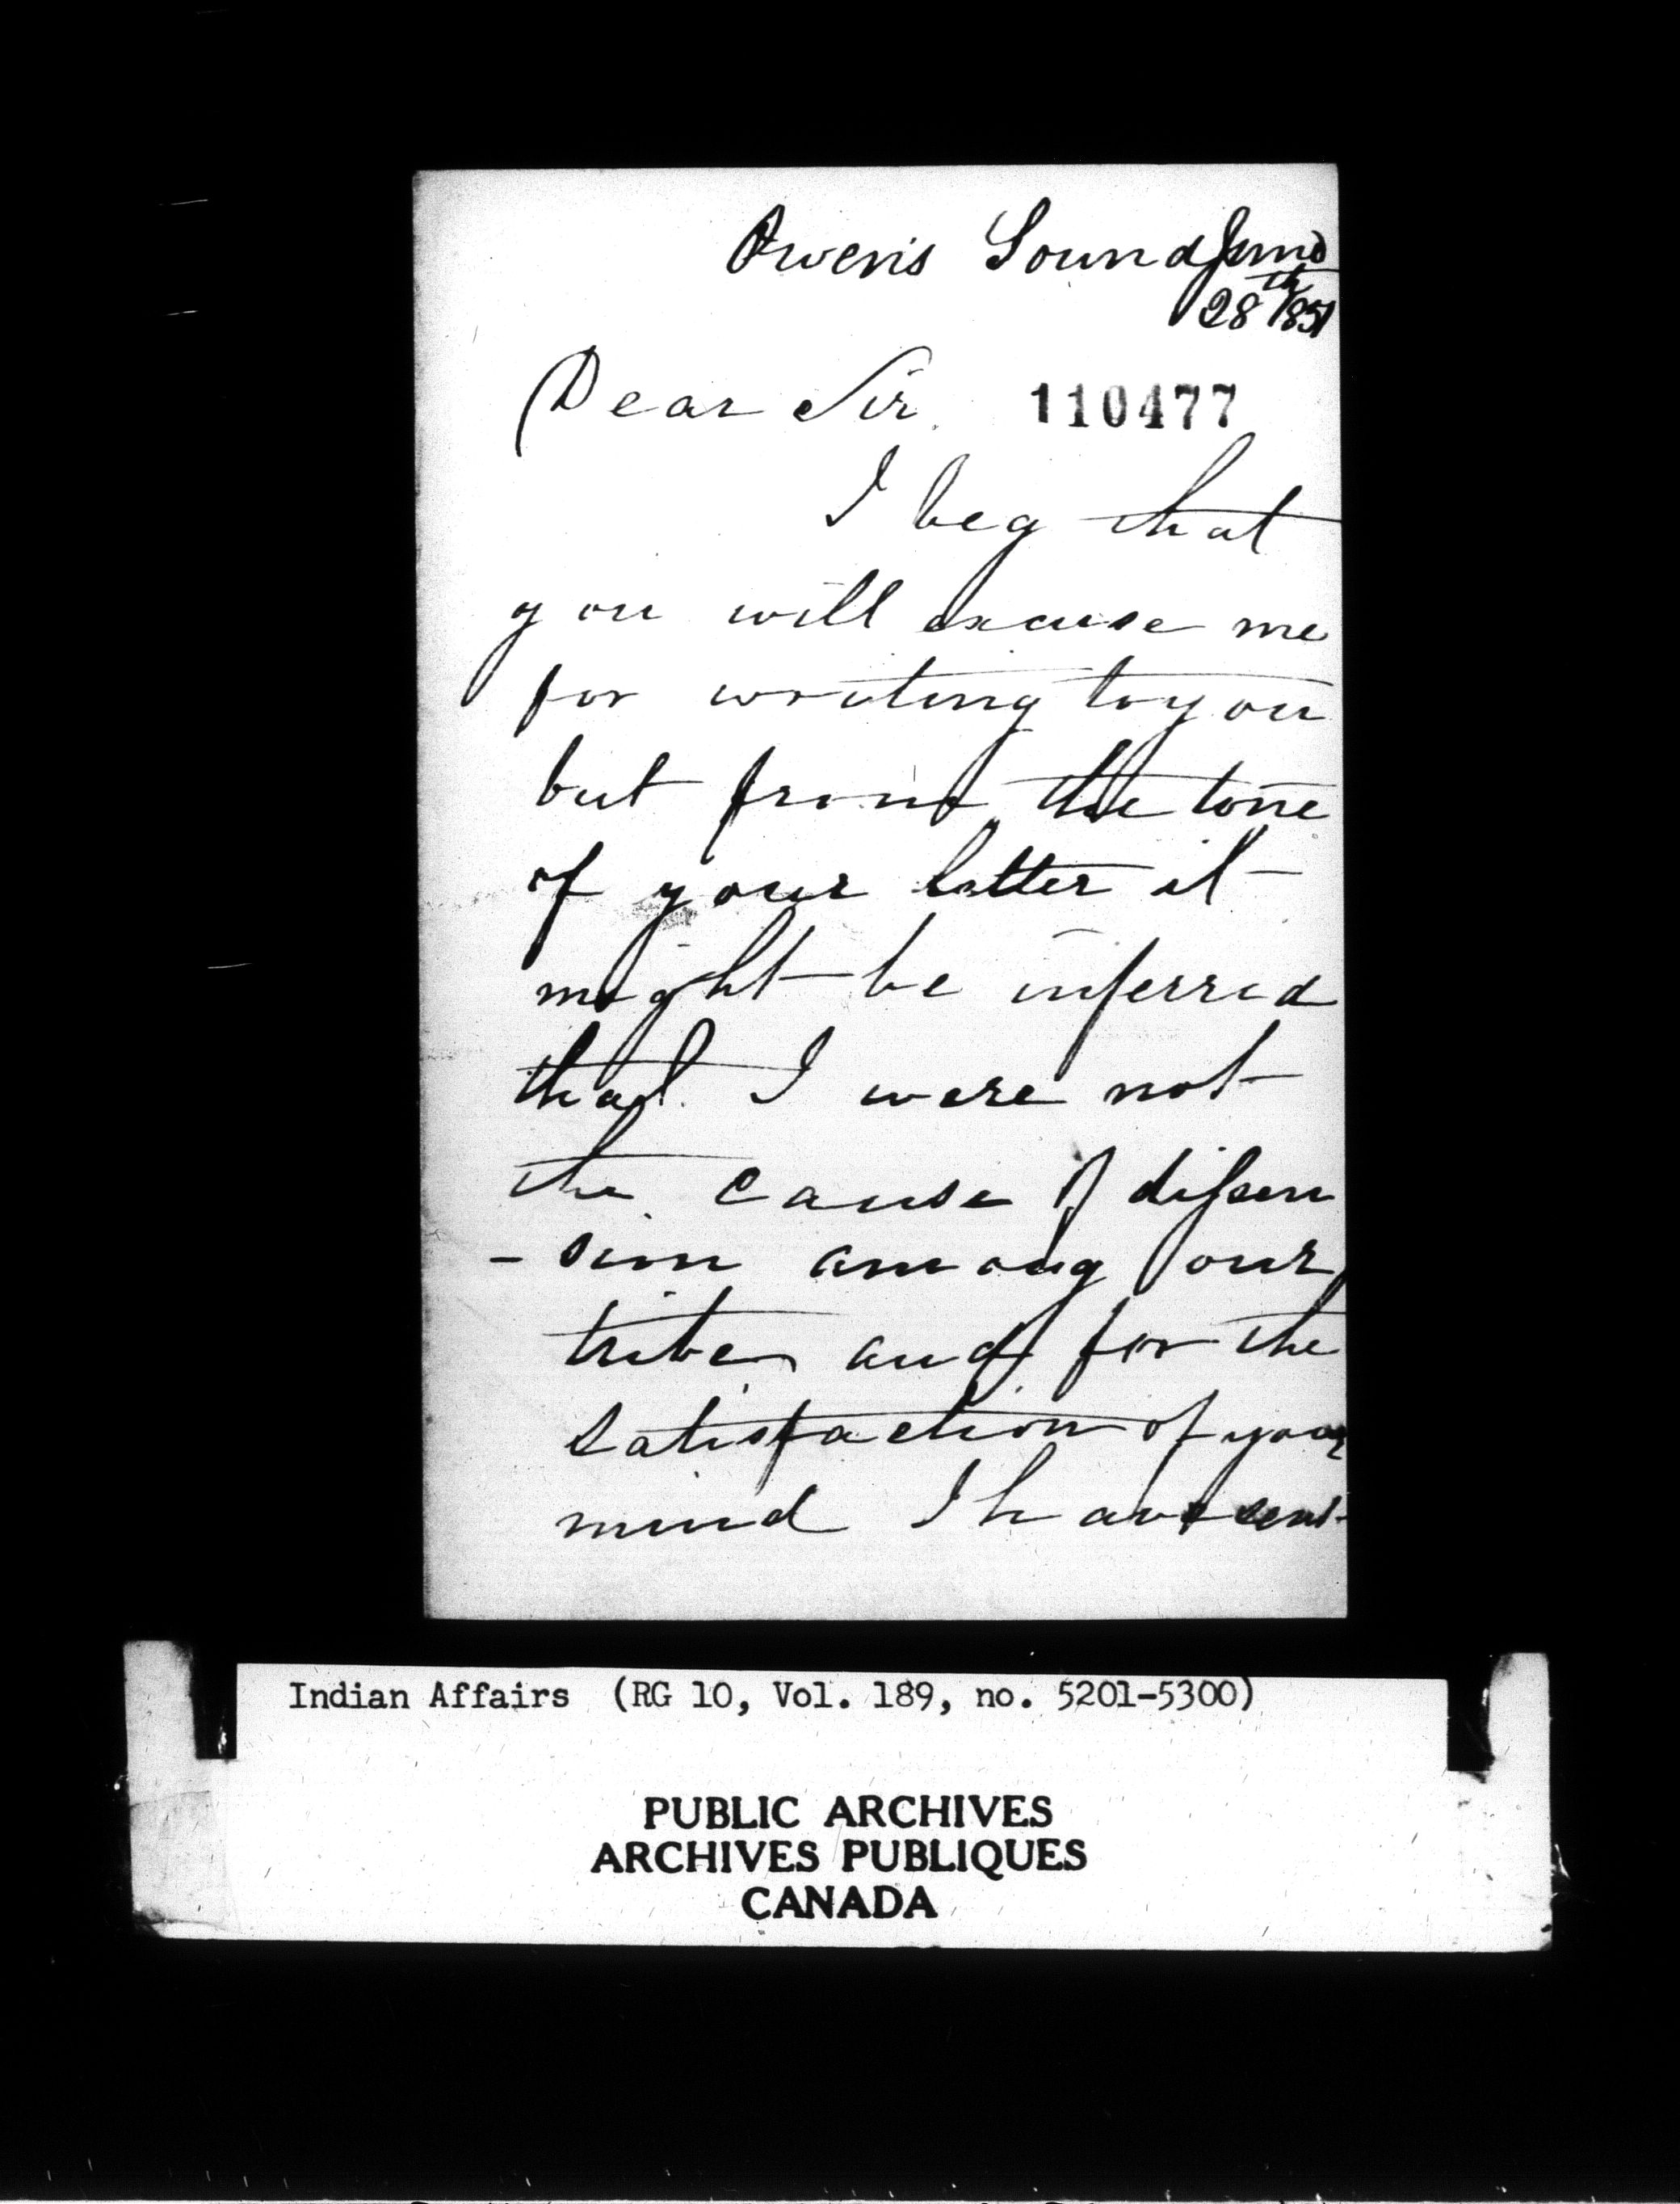 Owen's Sound June
28th 1851
Dear Sir.
110477
I beg that
you will excuse me
for writing to you
but from the tone
of your letter it
might be inferred
that I were not
the cause of dissen
- sion among our
tribe and for the
satisfaction of your
mind I have sent
Indian Affairs (RG 10, Vol. 189, no. 5201-5300)
PUBLIC ARCHIVES
ARCHIVES PUBLIQUES
CANADA